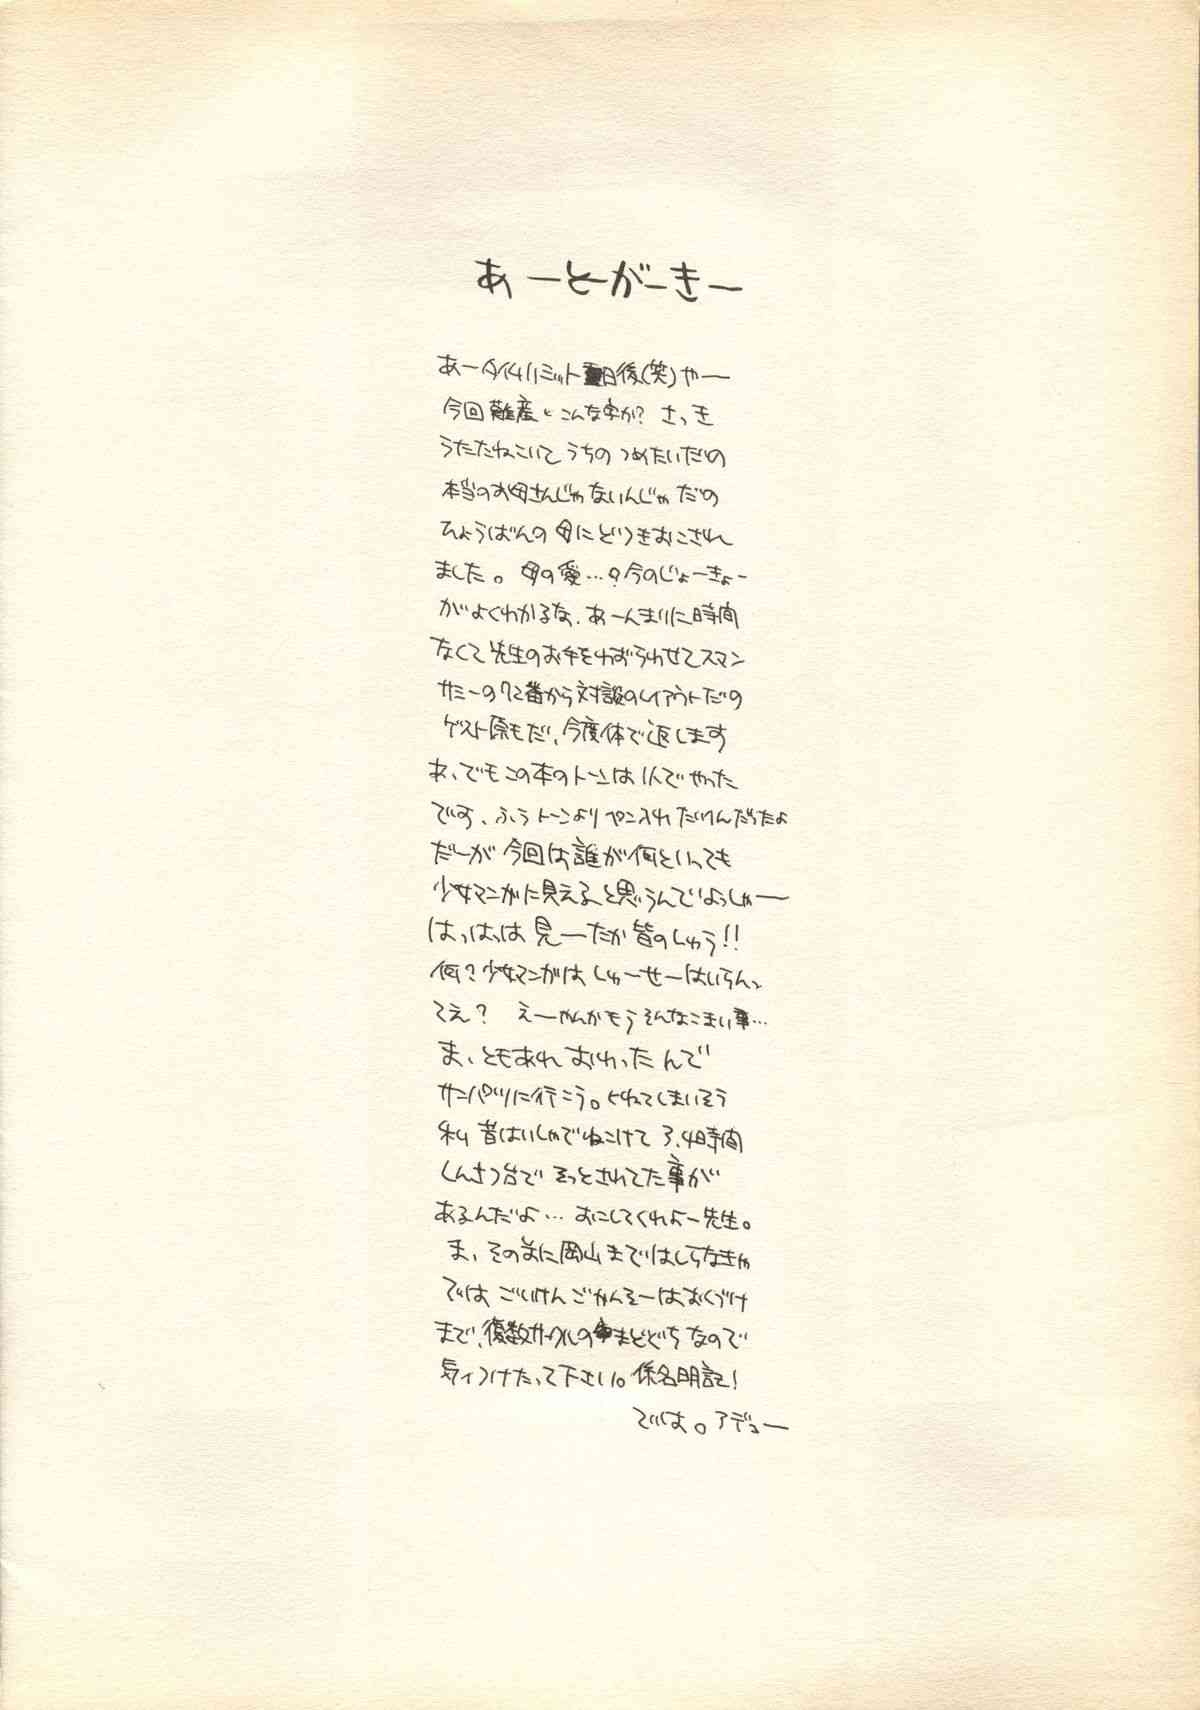 あーとがーきー
あータイムリミット 日後(笑)やー
今回難産とこんな字か? さっき
うたたねこいて うちの つめたいだの
本当のお母さんじゃないんじゃ だの
ひょうばんの 母に どつきおこされ
ました。 母の愛…?今のじょーきょー
がよくわかるな、あーんまりに時間
なくて先生のお手をわずらわせてスマン
サミーの72番から対談のレイアウトだの
ゲスト原もだ、今度体で返します
あ、でもこの本のトーンは1人でやった
です、ふう トーンより ペン入れ だけんだったよ
だーが 今回は誰が何といっても
少女マンガに見えると思うんでいよっしゃー
はっはっは 見ーたか 皆のしゅう!!
何?少女マンガは しゅーせーはいらんっ
てえ? えーやんかもう そんなこまい事…
ま、ともあれ おわったんで
サンパツに行こう。 ねてしまいそう
私 昔はいしゃでねこけて 3、4時間
しんさつ台で そっとされてた事が
あるんだよ… おこしてくれよー先生。
ま、その前に岡山まではしらなきゃ
では ごいけん ごかんそーは おくづけ
まで、複数サークルの まどぐち なので
気ィつけたって下さい。係名明記!
では。アデュー